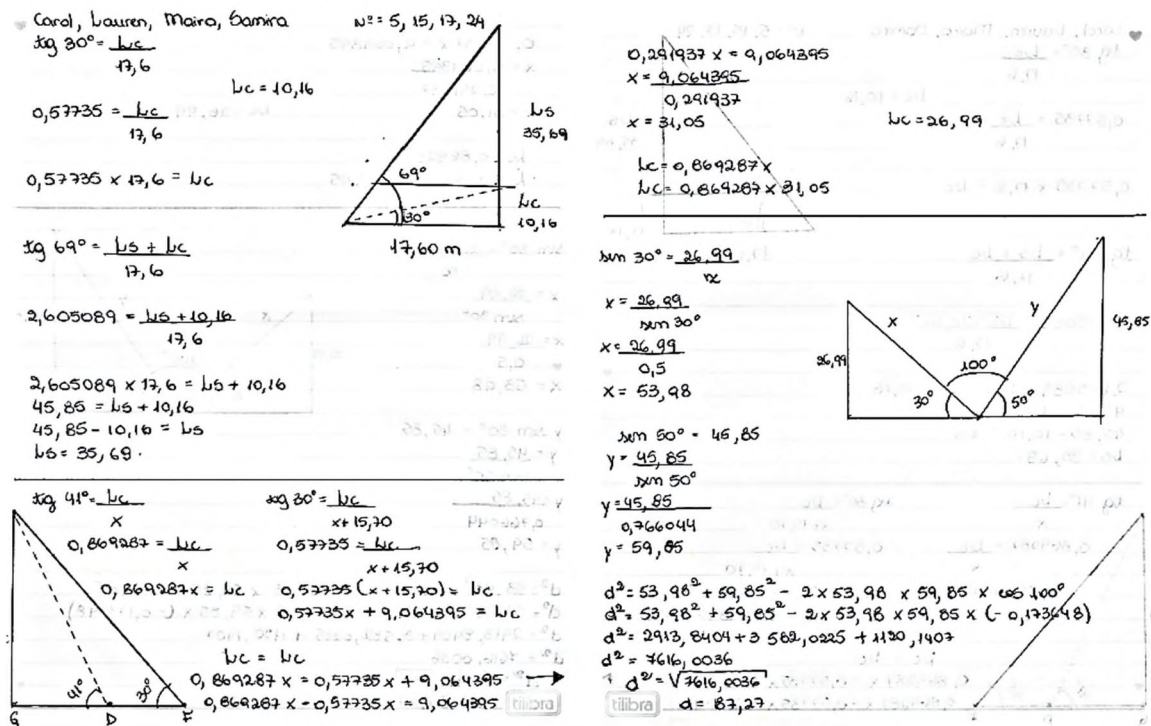 Carol, Lauren, Maira, Samira Nº = 5, 15, 17, 24
tg 30° = Lc
17,6
Lc = 10,16
0,57735 = Lc
17,6
0,57735 x 17,6 = Lc
Ls
35,69
69°
Lc
10,16
30°
17,60 m
tg 69° = Ls + Lc
17,6
2,605089 = Ls + 10,16
17,6
2,605089 x 17,6 = Ls + 10,16
45,85 = Ls + 10,16
45,85 - 10,16 = Ls
Ls = 35,69.
tg 41° = Lc
x
tog 30° = Lc
x + 15,70
0,869287 = Lc
x
0,57735 = Lc
x + 15,70
0,869287x = Lc
0,57735 (x + 15,70) = Lc
0,57735x + 9,064395 = Lc
Lc = Lc
0,869287 x = 0,57735x + 9,064395
0,869287x - 0,57735x = 9,064395
41° 30°
G D F
tilibra
0,291937 x = 9,064395
x = 9,064395
0,291937
x = 31,05
Lc = 26,99
Lc = 0,869287x
Lc = 0,869287 x 31,05
sen 30° = 26,99
x
x = 26,99
sen 30°
x = 26,99
0,5
x = 53,98
x y
26,99
45,85
100°
30° 50°
sen 50° = 45,85
y = 45,85
sen 50°
y = 45,85
0,766044
y = 59,85
d² = 53,98² + 59,85² - 2 x 53,98 x 59,85 x cos 100°
d² = 53,98² + 59,85² - 2 x 53,98 x 59,85 x (-0,173648)
d² = 2913,8404 + 3 582,0225 + 1120,1407
d² = 7616,0036
d² = √7616,0036
d = 87,27
tilibra